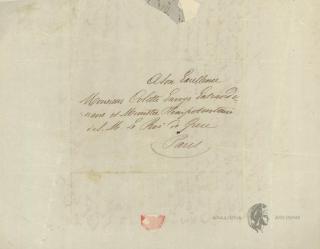 A Son Excellence
Monsieur Colette Envoyé Extraordi-
naire et Ministre Plénipotentiaire
de S. M. le Roi de Grèce
Paris